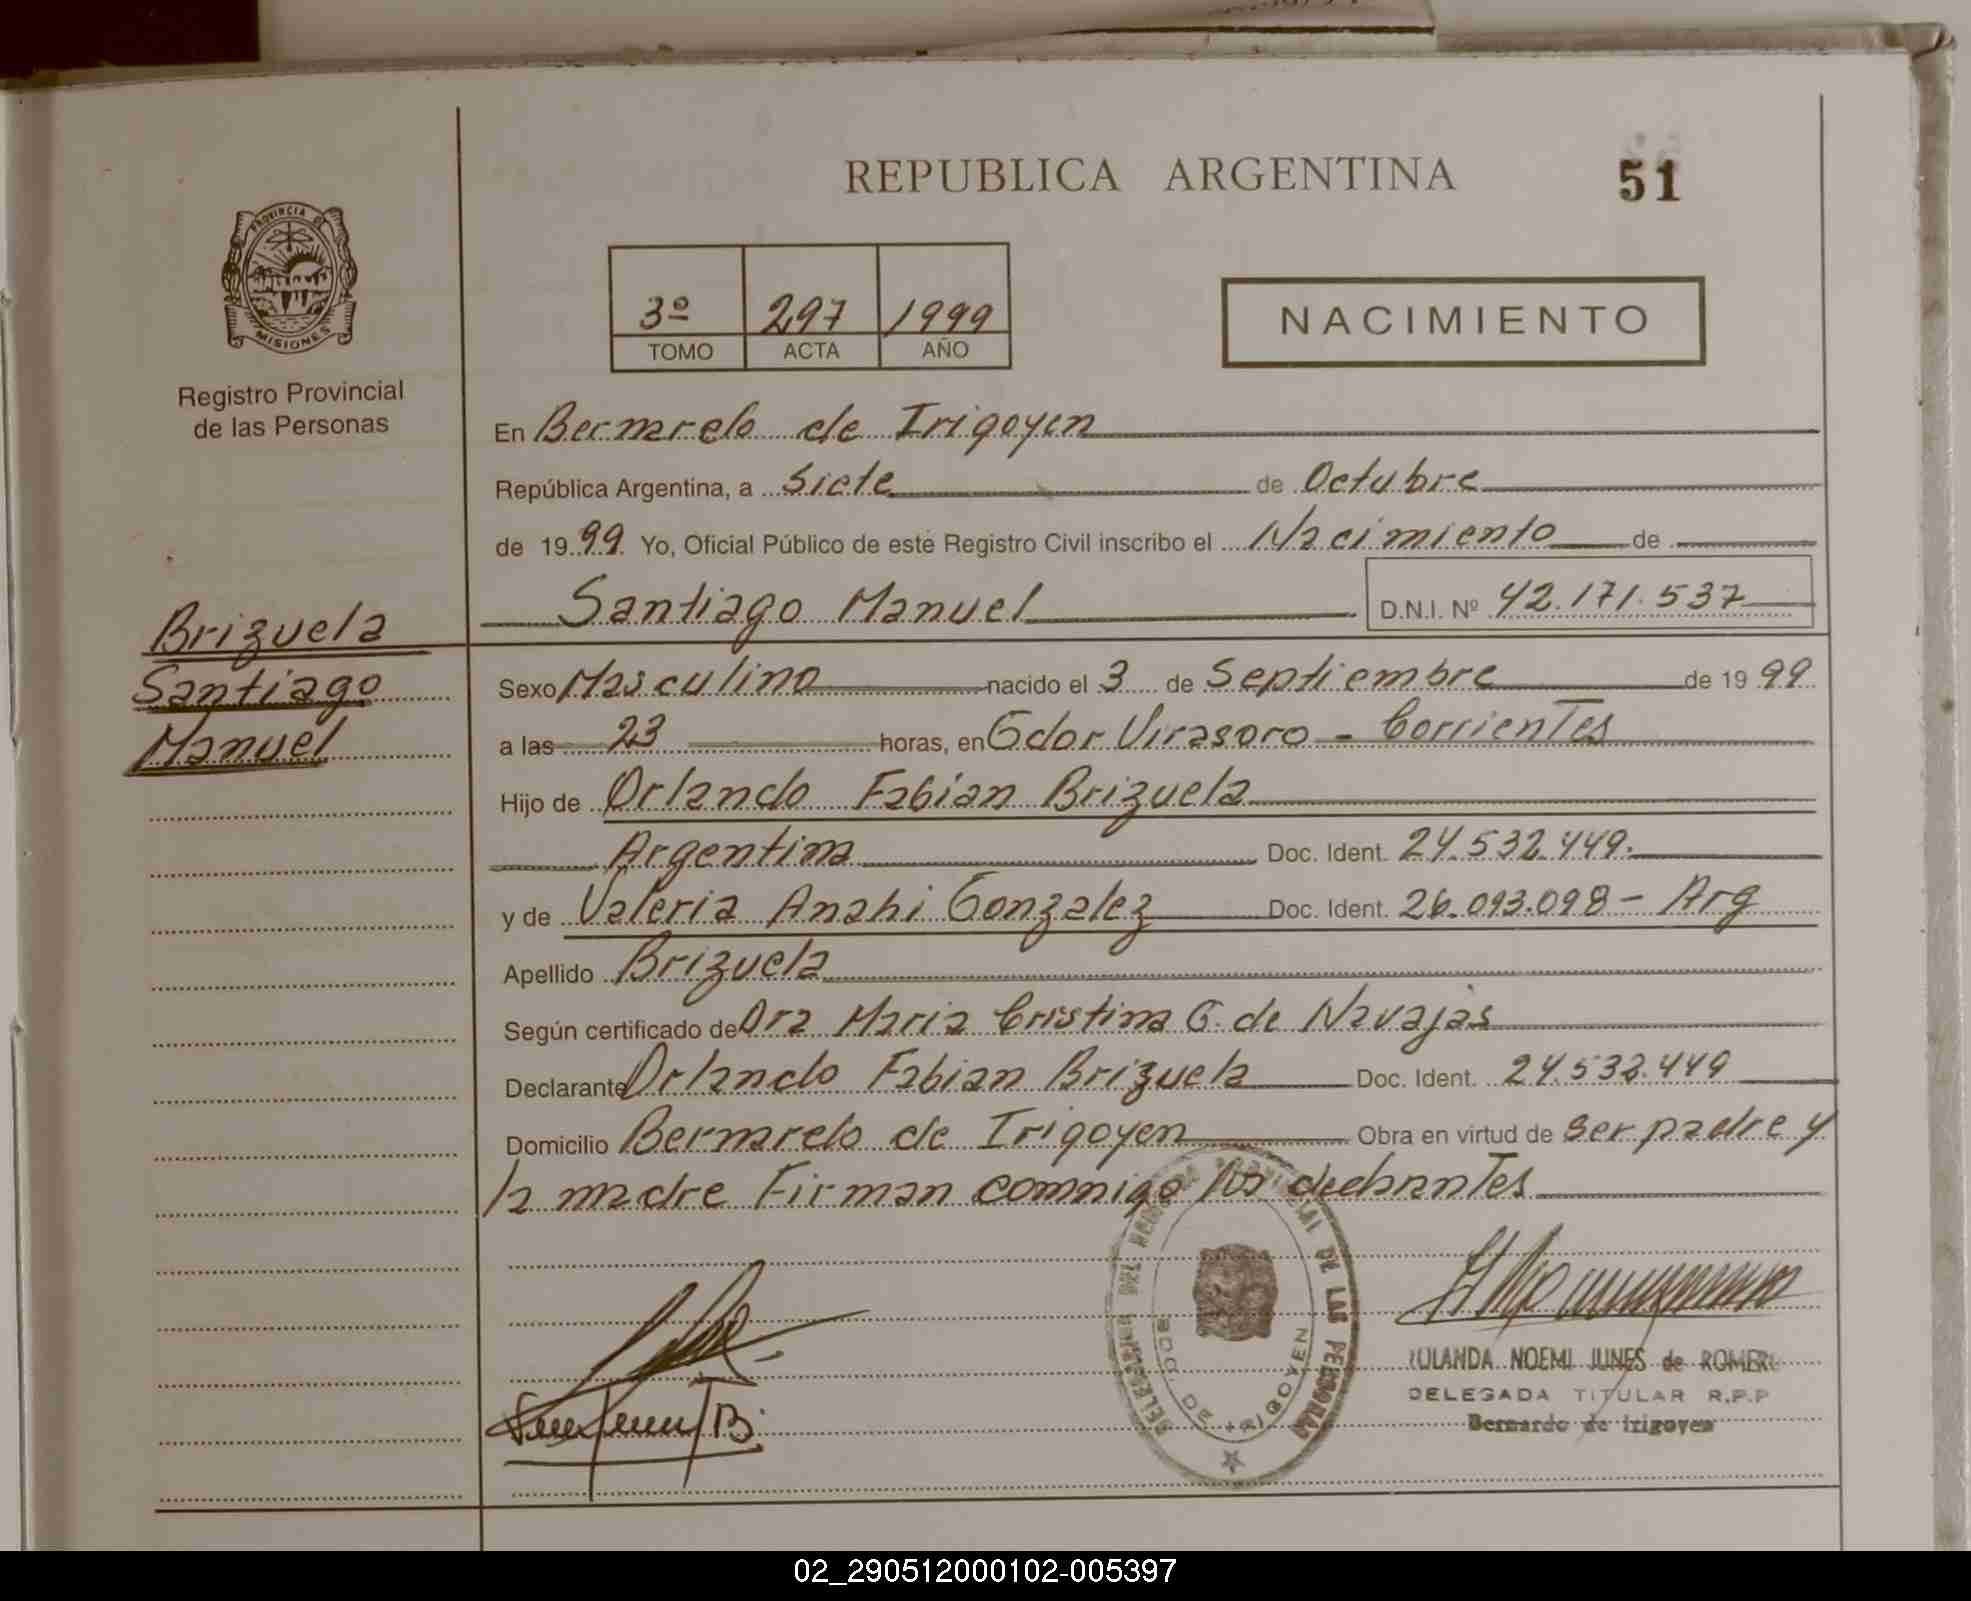 REPUBLICA ARGENTINA
51
PROVINCIA DE
MISIONES
Registro Provincial
de las Personas
3º 297 1999
TOMO ACTA AÑO
NACIMIENTO
En Bernardo de Irigoyen
República Argentina, a Siete de Octubre
de 1999 Yo, Oficial Público de este Registro Civil inscribo el Nacimiento de
Santiago Manuel D.N.I. Nº 42.171.537
Brizuela
Santiago
Manuel
Sexo Masculino nacido el 3 de Septiembre de 1999
a las 23 horas, en Gdor Virasoro - Corrientes
Hijo de Orlando Fabián Brizuela
Argentina Doc. Ident. 24.532.449.
y de Valeria Anahi Gonzalez Doc. Ident. 26.093.098 - Arg
Apellido Brizuela
Según certificado de Dra Maria Cristina G. de Navajas
Declarante Orlando Fabian Brizuela Doc. Ident. 24.532.449
Domicilio Bernardo de Irigoyen Obra en virtud de ser padre y
la madre Firman conmigo los declarantes
DE LAS PERSONAS
BDO. DE IRIGOYEN
NOEMI JUNES de
DELEGADA TITULAR R.P.P
Bernardo de Irigoyen
02_290512000102-005397